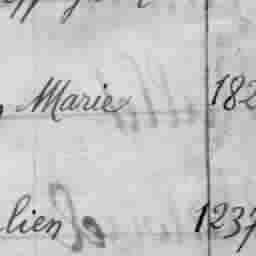 , Marie 182
lien 1237